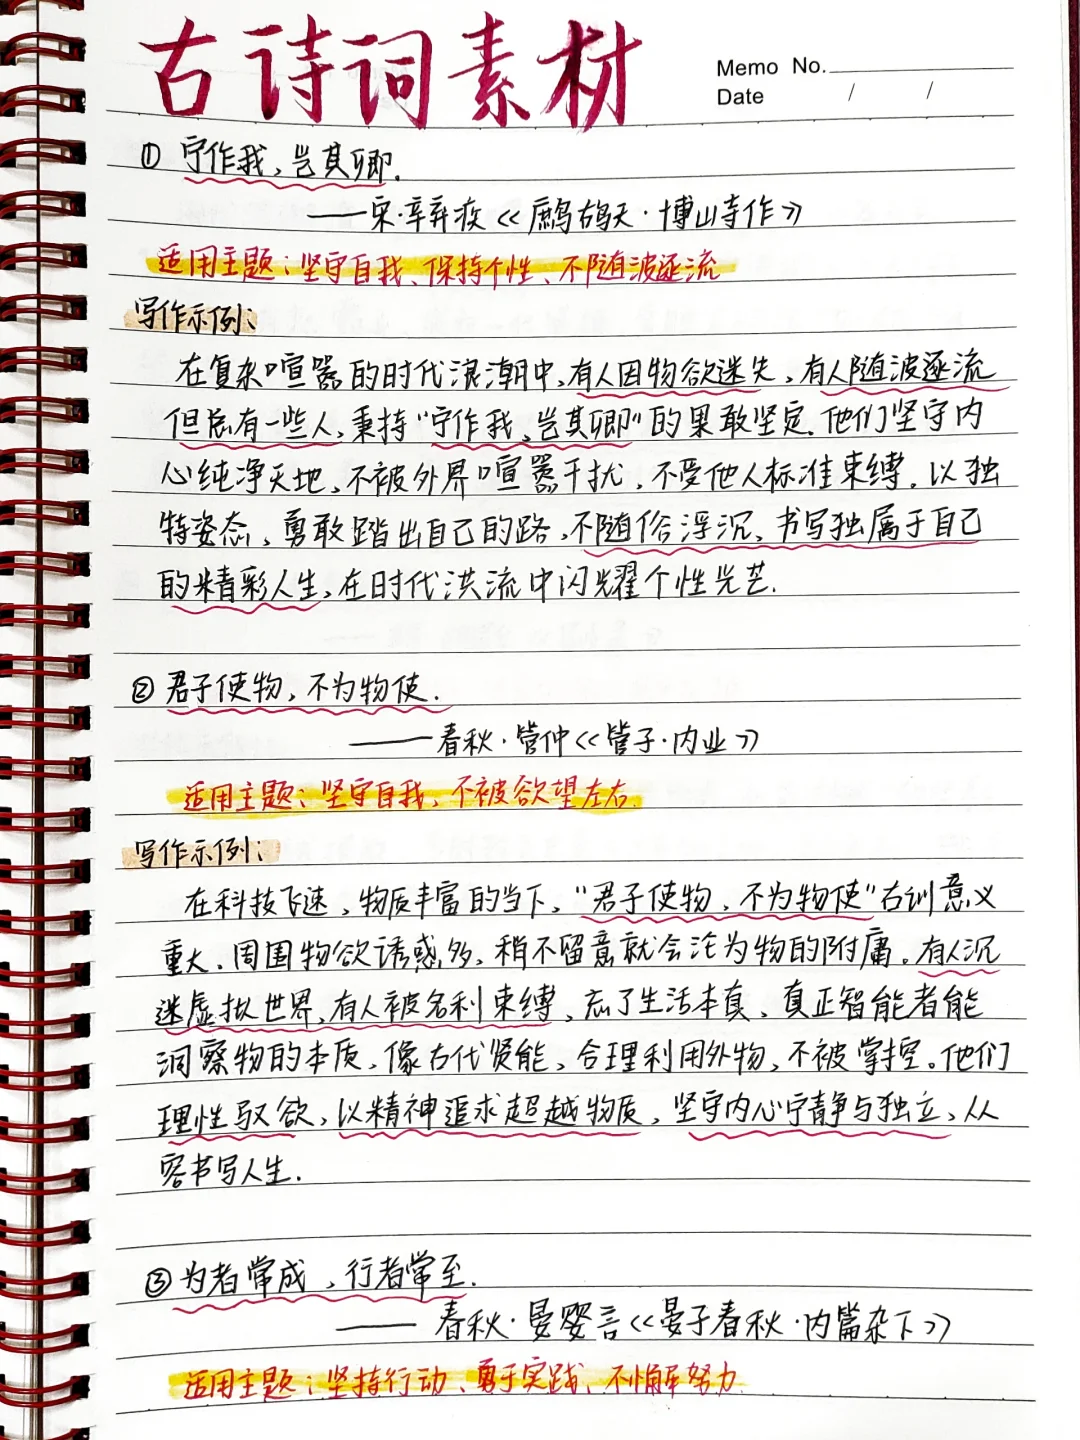 古诗词素材
Memo No.
Date / /
① 宁作我，岂其卿.
——宋·辛弃疾《鹧鸪天·博山寺作》
适用主题：坚守自我、保持个性、不随波逐流
写作示例：
在复杂喧嚣的时代浪潮中，有人因物欲迷失，有人随波逐流
但总有一些人，秉持"宁作我，岂其卿"的果敢坚定.他们坚守内
心纯净天地，不被外界喧嚣干扰，不受他人标准束缚.以独
特姿态，勇敢踏出自己的路，不随俗浮沉、书写独属于自己
的精彩人生，在时代洪流中闪耀个性光芒.
② 君子使物，不为物使.
——春秋·管仲《管子·内业》
适用主题：坚守自我、不被欲望左右.
写作示例：
在科技飞速，物质丰富的当下，"君子使物，不为物使"古训意义
重大.周围物欲诱惑多，稍不留意就会沦为物的附庸.有人沉
迷虚拟世界，有人被名利束缚，忘了生活本真，真正智能者能
洞察物的本质，像古代贤能，合理利用外物，不被掌控。他们
理性驭欲，以精神追求超越物质，坚守内心宁静与独立，从
容书写人生.
③ 为者常成，行者常至.
——春秋·晏婴言《晏子春秋·内篇杂下》
适用主题：坚持行动、勇于实践、不懈努力